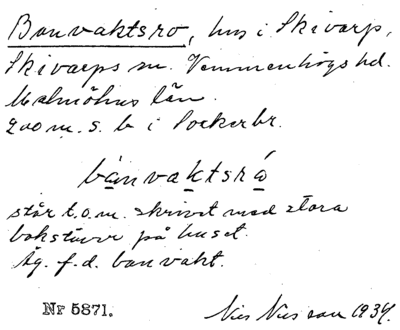 Banvaktsro, hus i Skivarp,
Skivarps sn. Vemmenhögs hd.
Malmöhus län.
200 m. s. b i Sockerbr.
bánvaktsrå
står t.o.m. skrivet med stora
bokstäver på huset.
Äg. f.d. banvakt.
Nr 5871.
Nils Nilsson 1934.